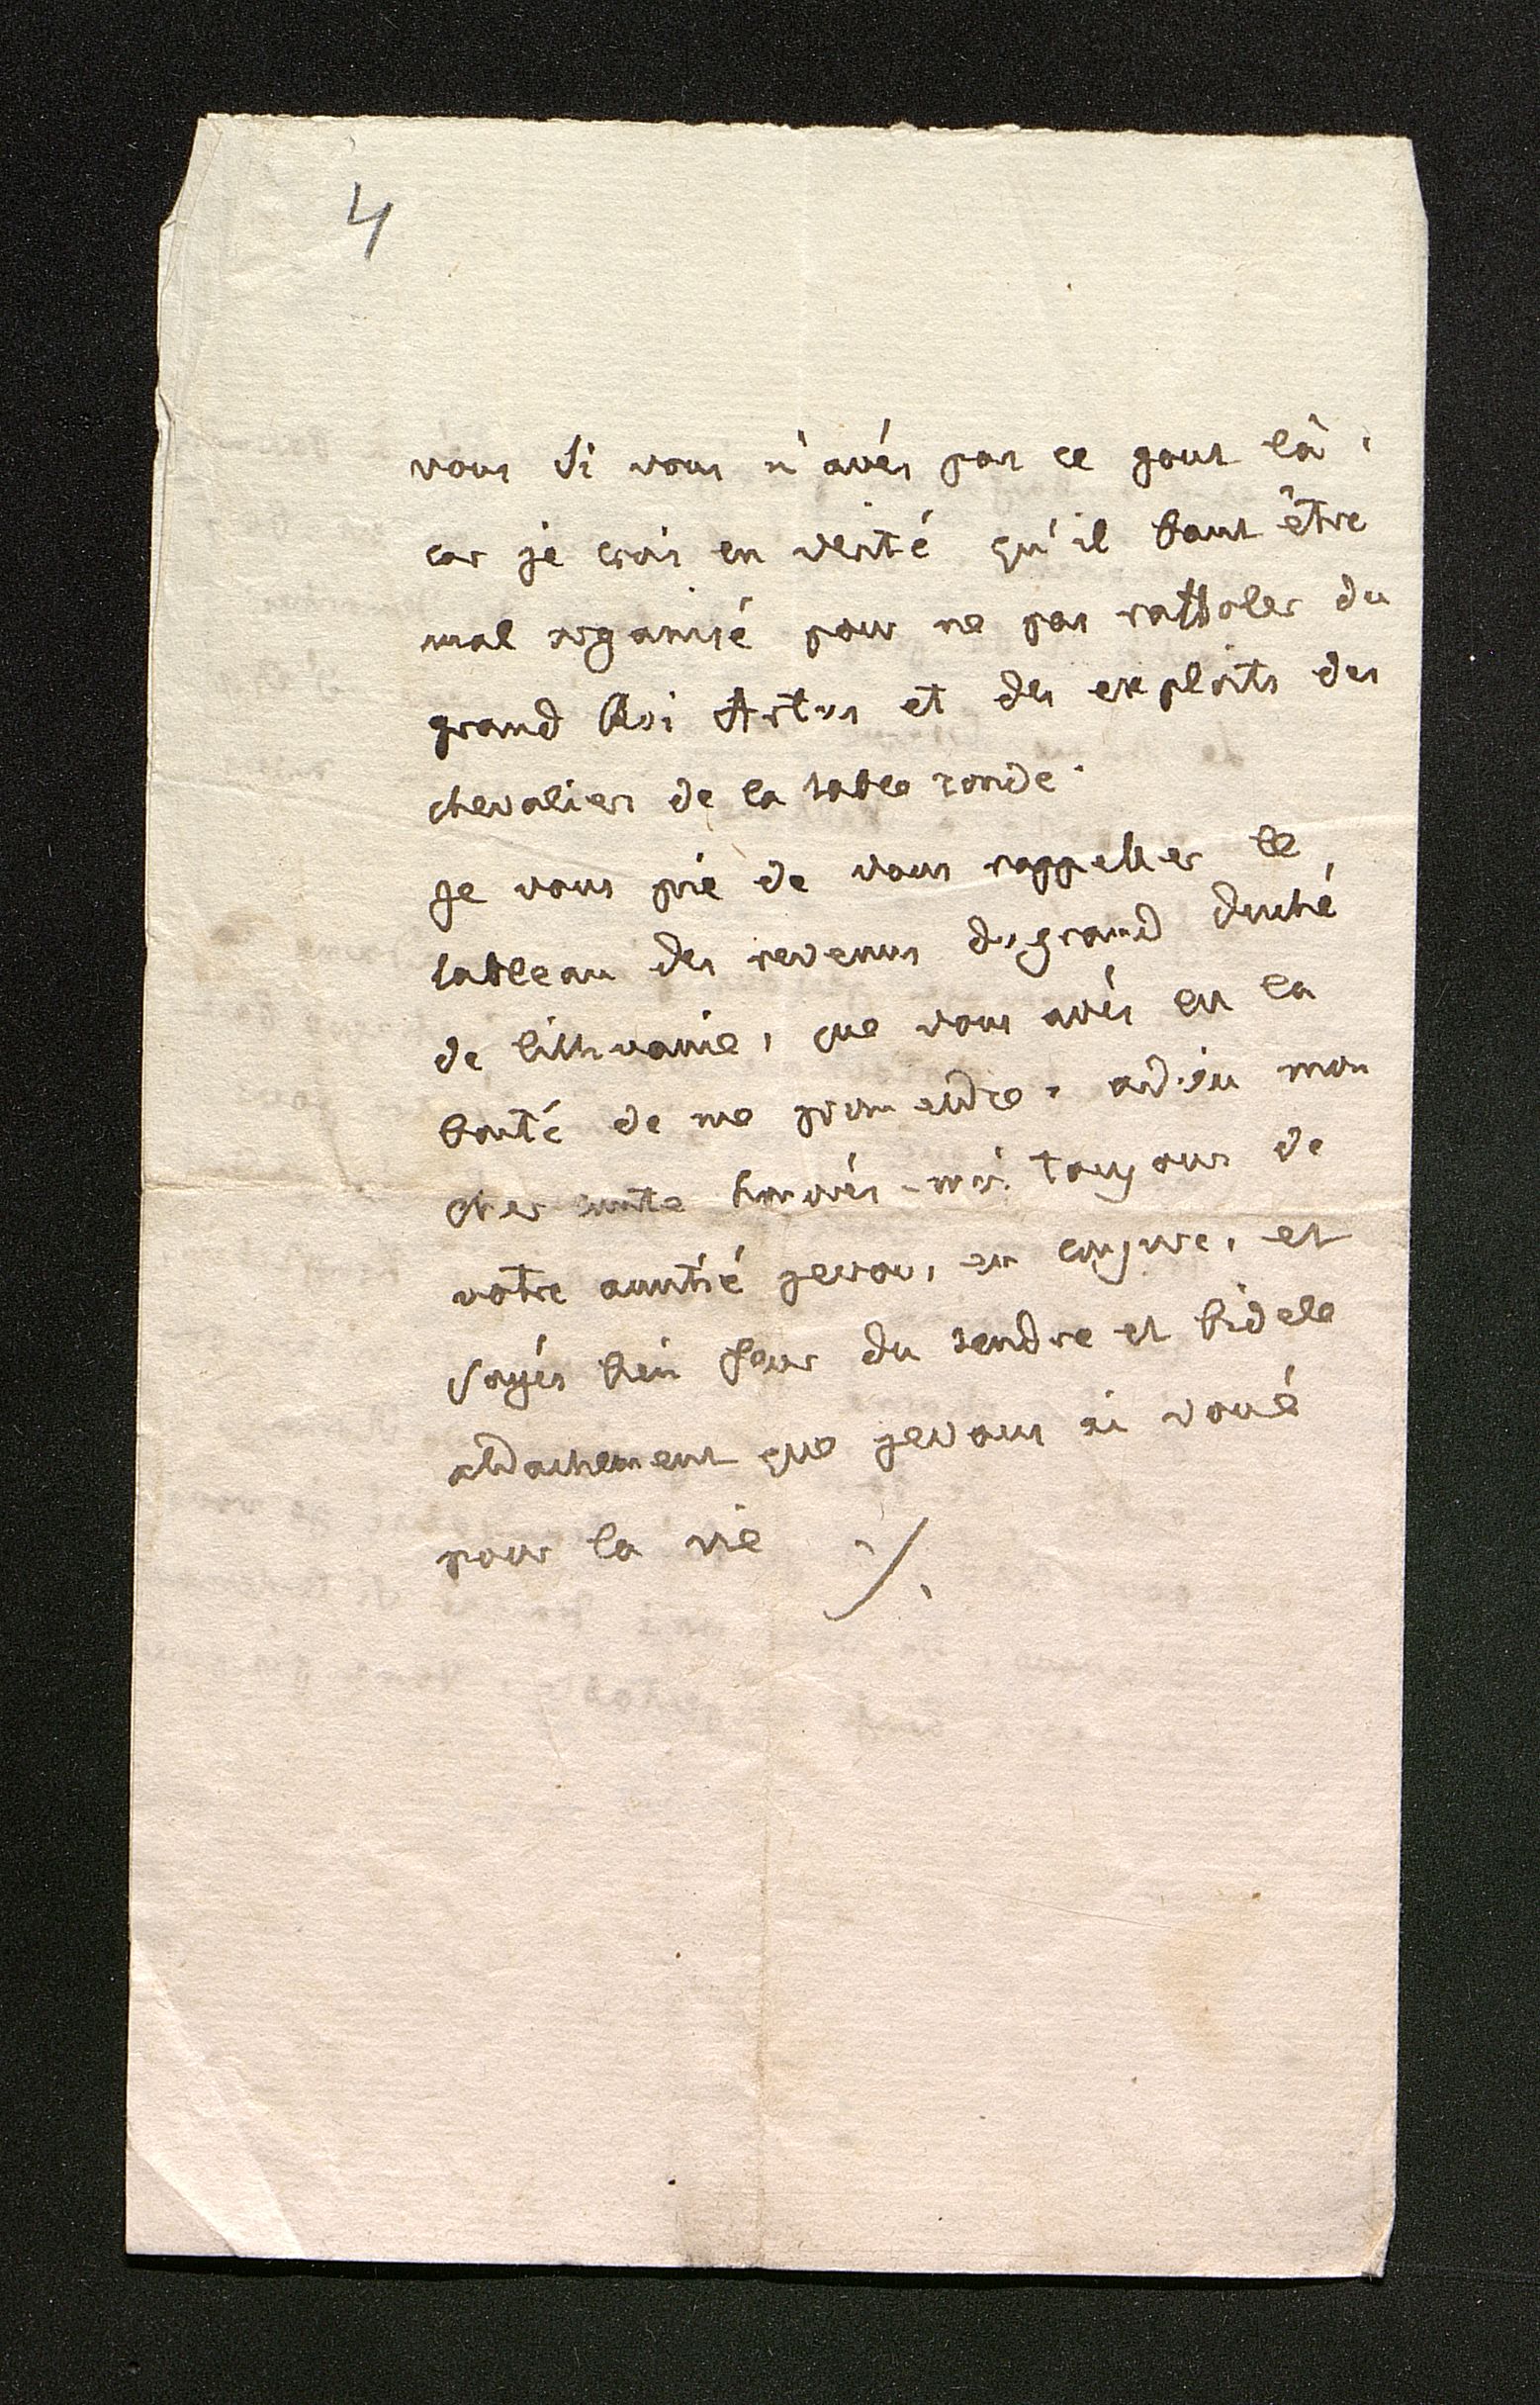 4
vous si vous n'avés pas ce gout là,
car je crois en verité qu'il faut être
mal organisé pour ne pas raffoler du
grand Roi Artus et des exploits des
chevaliers de la table ronde.
je vous prie de vous rappeller le
tableau des revenus du grand duché
de lithuanie, que vous avés eu la
bonté de me promettre. adieu mon
cher comte honorés-moi toujours de
votre amitié je vous en conjure, et
soyés bien seur du tendre et fidele
attachement que je vous ai voué
pour la vie ./.